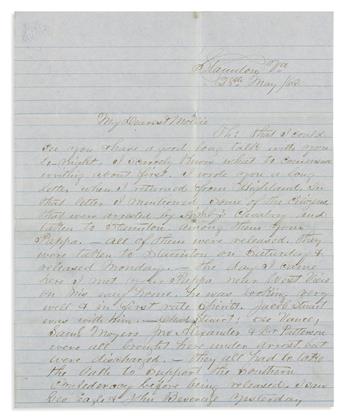 Staunton Va
28th May /62
My Dearest Mollie
Oh! that I could
see you & have a good long talk with you
to-night, I scarcely know what to commence
writing about first. I wrote you a long
letter when I returned from Highland. In
that letter I mentioned some of the citizens
that were arrested by and
taken to Staunton, among them your
Pappa. - all of them were released. they
were taken to Staunton on Saturday &
released Monday. - the day I came
here I met your Pappa near West View
on his way home. he was looking very
well & in first rate spirits. Jacob Stuart
was with him. - Geo Vance,
Saml Moyers Mr Alexander & Dr Patterson
were all brought here under arrest but
were discharged. - they all had to take
the Oath to support the Southern
Confederacy before being released. I saw
Geo Eagle & Beverage yesterday